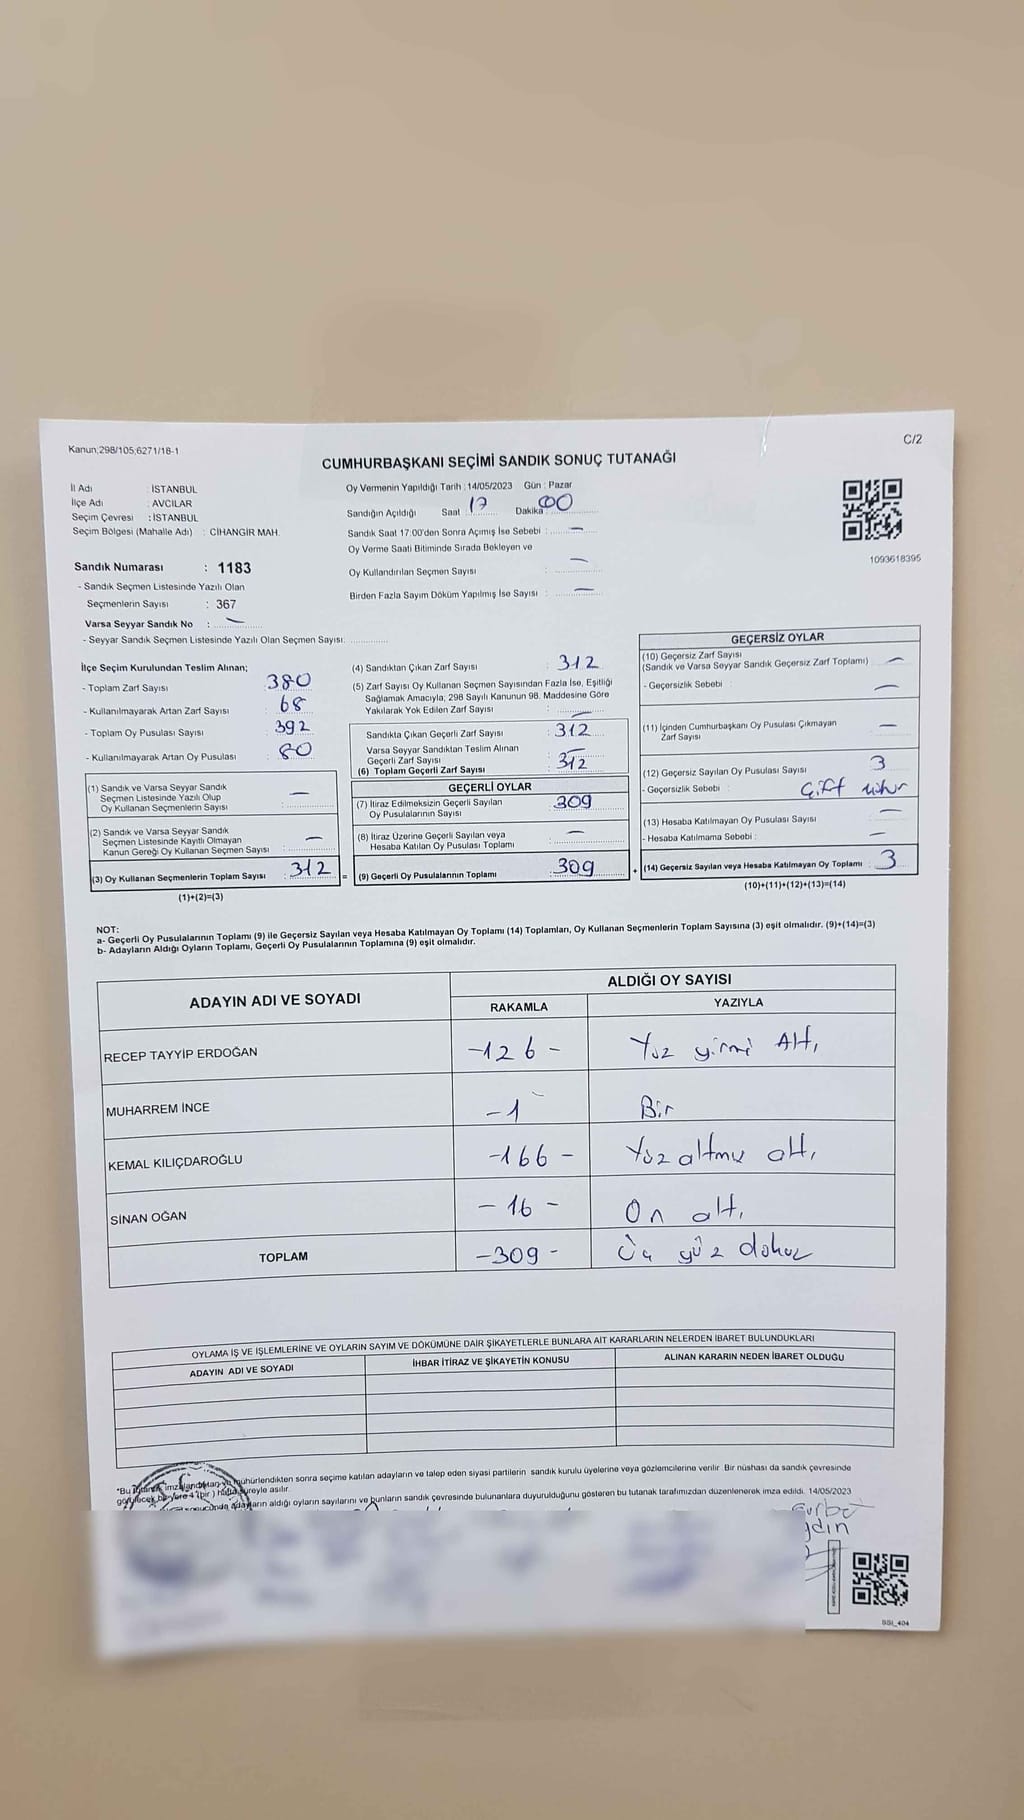 Kanun;298/105;6271/18-1
C/2
CUMHURBAŞKANI SEÇİMİ SANDIK SONUÇ TUTANAĞI
İl Adı : İSTANBUL
İlçe Adı : AVCILAR
Seçim Çevresi : İSTANBUL
Seçim Bölgesi (Mahalle Adı) : CİHANGİR MAH.
Sandık Numarası : 1183
- Sandık Seçmen Listesinde Yazılı Olan
Seçmenlerin Sayısı : 367
Varsa Seyyar Sandık No : —
- Seyyar Sandık Seçmen Listesinde Yazılı Olan Seçmen Sayısı:
Oy Vermenin Yapıldığı Tarih : 14/05/2023 Gün : Pazar
Sandığın Açıldığı Saat 17 Dakika 00
Sandık Saat 17:00'den Sonra Açımış İse Sebebi : —
Oy Verme Saati Bitiminde Sırada Bekleyen ve
Oy Kullandırılan Seçmen Sayısı : —
Birden Fazla Sayım Döküm Yapılmış İse Sayısı : —
1093618395
İlçe Seçim Kurulundan Teslim Alınan;
- Toplam Zarf Sayısı : 380
- Kullanılmayarak Artan Zarf Sayısı : 68
- Toplam Oy Pusulası Sayısı : 392
- Kullanılmayarak Artan Oy Pusulası : 80
(1) Sandık ve Varsa Seyyar Sandık
Seçmen Listesinde Yazılı Olup
Oy Kullanan Seçmenlerin Sayısı : —
(2) Sandık ve Varsa Seyyar Sandık
Seçmen Listesinde Kayıtlı Olmayan
Kanun Gereği Oy Kullanan Seçmen Sayısı : —
(3) Oy Kullanan Seçmenlerin Toplam Sayısı : 312 =
(1)+(2)=(3)
(4) Sandıktan Çıkan Zarf Sayısı : 312
(5) Zarf Sayısı Oy Kullanan Seçmen Sayısından Fazla İse, Eşitliği
Sağlamak Amacıyla; 298 Sayılı Kanunun 98. Maddesine Göre
Yakılarak Yok Edilen Zarf Sayısı : —
Sandıkta Çıkan Geçerli Zarf Sayısı : 312
Varsa Seyyar Sandıktan Teslim Alınan
Geçerli Zarf Sayısı : —
(6) Toplam Geçerli Zarf Sayısı : 312
GEÇERLİ OYLAR
(7) İtiraz Edilmeksizin Geçerli Sayılan
Oy Pusulalarının Sayısı : 309
(8) İtiraz Üzerine Geçerli Sayılan veya
Hesaba Katılan Oy Pusulası Toplamı : —
(9) Geçerli Oy Pusulalarının Toplamı : 309 +
GEÇERSİZ OYLAR
(10) Geçersiz Zarf Sayısı
(Sandık ve Varsa Seyyar Sandık Geçersiz Zarf Toplamı) : —
- Geçersizlik Sebebi : —
(11) İçinden Cumhurbaşkanı Oy Pusulası Çıkmayan
Zarf Sayısı : —
(12) Geçersiz Sayılan Oy Pusulası Sayısı : 3
- Geçersizlik Sebebi : Çift mühür
(13) Hesaba Katılmayan Oy Pusulası Sayısı : —
- Hesaba Katılmama Sebebi : —
(14) Geçersiz Sayılan veya Hesaba Katılmayan Oy Toplamı : 3
(10)+(11)+(12)+(13)=(14)
NOT:
a- Geçerli Oy Pusulalarının Toplamı (9) ile Geçersiz Sayılan veya Hesaba Katılmayan Oy Toplamı (14) Toplamları, Oy Kullanan Seçmenlerin Toplam Sayısına (3) eşit olmalıdır. (9)+(14)=(3)
b- Adayların Aldığı Oyların Toplamı, Geçerli Oy Pusulalarının Toplamına (9) eşit olmalıdır.
ADAYIN ADI VE SOYADI
ALDIĞI OY SAYISI
RAKAMLA YAZIYLA
RECEP TAYYİP ERDOĞAN -126- Yüz yirmi Altı
MUHARREM İNCE -1- Bir
KEMAL KILIÇDAROĞLU -166- Yüz altmış altı
SİNAN OĞAN -16- On altı
TOPLAM -309- Üç yüz dokuz
OYLAMA İŞ VE İŞLEMLERİNE VE OYLARIN SAYIM VE DÖKÜMÜNE DAİR ŞİKAYETLERLE BUNLARA AİT KARARLARIN NELERDEN İBARET BULUNDUKLARI
ADAYIN ADI VE SOYADI İHBAR İTİRAZ VE ŞİKAYETİN KONUSU ALINAN KARARIN NEDEN İBARET OLDUĞU
*Bu tutanak imzalandıktan ve mühürlendikten sonra seçime katılan adayların ve talep eden siyasi partilerin sandık kurulu üyelerine veya gözlemcilerine verilir. Bir nüshası da sandık çevresinde
görülecek bir yere 1 (bir) hafta süreyle asılır.
sonucunda adayların aldığı oyların sayılarını ve bunların sandık çevresinde bulunanlara duyurulduğunu gösteren bu tutanak tarafımızdan düzenlenerek imza edildi. 14/05/2023
SSI_404